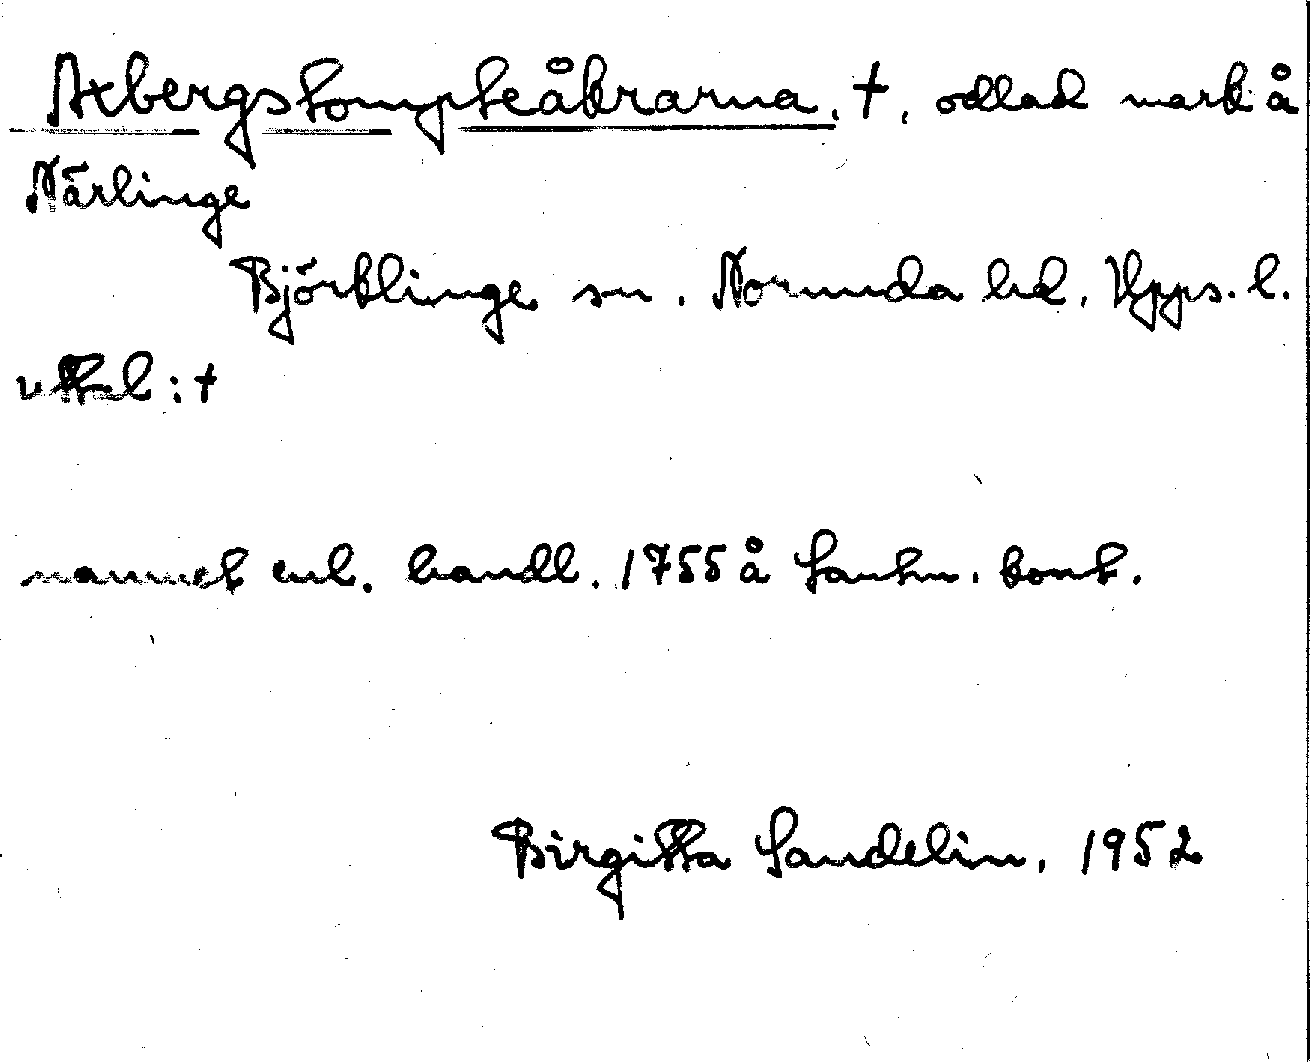 Axbergstompteåkrarna, †, odlad mark å
Närlinge
Björklinge sn. Norunda hd, Upps. l.
uttal: †
namnet enl. handl. 1755 å Lantm. kont.
Birgitta Sandelin, 1952